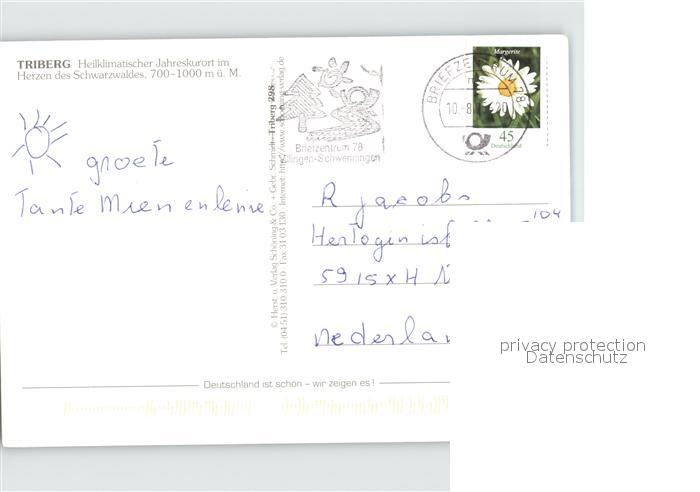 TRIBERG Heilklimatischer Jahreskurort im
Herzen des Schwarzwaldes, 700-1000 m ü. M.
groete
Tante Mien en lenie
© Herst. u. Verlag Schöning & Co. + Gebr. Schmidt - Triberg 298
Tel. (04 51) 3 10 31 0 · Fax 31 03 130 · Internet: http://www.
Briefzentrum 78
Villingen-Schwenningen
BRIEFZENTRUM 78
Margerite
45
Deutschland
R Jacobs
104
Hertogin
5915XH
Nederlan
Deutschland ist schön – wir zeigen es !
privacy protection
Datenschutz